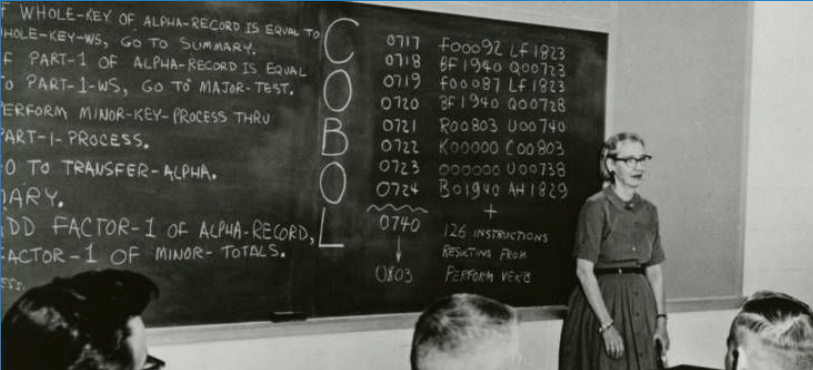 F WHOLE-KEY OF ALPHA-RECORD IS EQUAL TO
HOLE-KEY-WS, GO TO SUMMARY.
F PART-1 OF ALPHA-RECORD IS EQUAL
O PART-1-WS, GO TO MAJOR-TEST.
ERFORM MINOR-KEY-PROCESS THRU
PART-1-PROCESS.
O TO TRANSFER-ALPHA.
MARY.
DD FACTOR-1 OF ALPHA-RECORD,
FACTOR-1 OF MINOR-TOTALS.
ESS.
COBOL
0717 F00092 LF1823
0718 BF1940 Q00723
0719 F00087 LF1823
0720 BF1940 Q00728
0721 R00803 U00740
0722 K00000 C00803
0723 000000 U00738
0724 B01940 AH1829
0740
↓
0803
+
126 INSTRUCTIONS
RESULTING FROM
PERFORM VERB